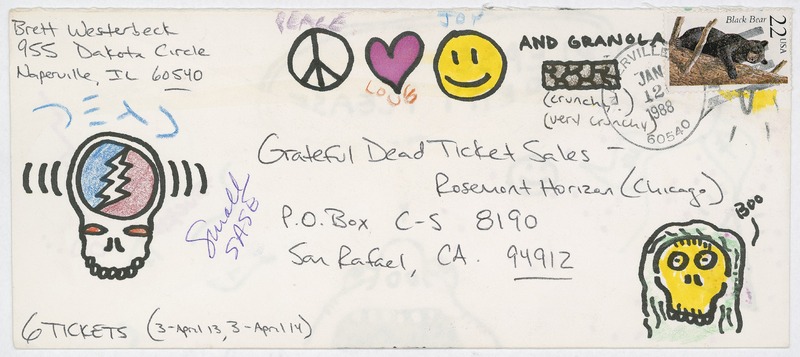 Brett Westerbeck
955 Dakota Circle
Naperville, IL 60540
PEACE
LOVE
JOY
AND GRANOLA
(crunchy!)
(very crunchy)
Black Bear
22 USA
JAN
12
1988
60540
DEAD
Grateful Dead Ticket Sales –
Rosemont Horizon (Chicago)
P.O. Box C-S 8190
San Rafael, CA. 94912
Small
SASE
BOO
6 TICKETS (3-April 13, 3-April 14)